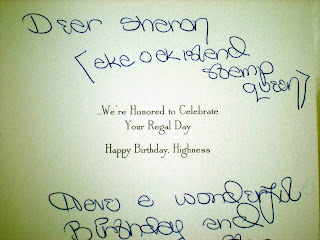 Dear Sharon
[aka oak island
stamp
queen]
...We're Honored to Celebrate
Your Regal Day
Happy Birthday, Highness
Have a wonderful
Birthday and